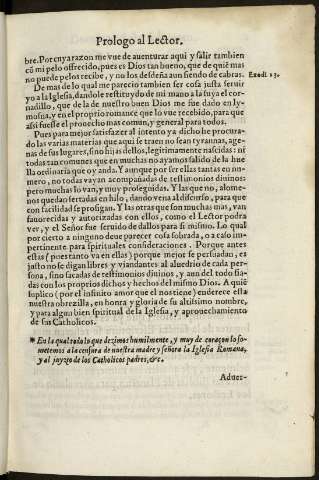 Prologo al Lector.
bre. Por cuya razon me vue de auenturar aqui y salir tambien
cũ mi pelo offrecido, pues es Dios tan bueno, que de quiẽ mas
no puede pelos recibe, y no los desdeña aun siendo de cabras. Exodi 23.
De mas de lo qual me parecio tambien ser cosa justa seruir
yo a la Iglesia, dandole restituydo de mi mano a la suya el cor-
nadillo, que de la de nuestro buen Dios me fue dado en ly-
mosna, y en el proprio romance que lo vue recebido, para que
assi fuesse el prouecho mas comun, y general para todos.
Pues para mejor satisfazer al intento ya dicho he procura-
do las varias materias que aqui se traen no sean tyrannas, age-
nas de sus lugares, sino hijas dellos, legitimamente nascidas: ni
todas tan comunes que en muchas no ayamos salido de la hue
lla ordinaria que oy anda. Y aunque por ser ellas tantas en nu-
mero, no todas vayan acompañadas de testimonios diuinos:
pero muchas lo van, y muy proseguidas. Y las que no, alome-
nos quedan sertadas en hilo, dando vena al discurso, para que
con facilidad se prosigan. Y las otras que son muchas mas, van
fauorecidas y autorizadas con ellos, como el Lector podra
ver, y el Señor fue seruido de dallos para si mismo. Lo qual
por cierto a ninguno deue parecer cosa sobrada, o a caso im-
pertinente para spirituales consideraciones. Porque antes
estas (puestanto va en ellas) porque mejor se persuadan, es
justo no se digan libres y viandantes al aluedrio de cada per-
sona, sino sacadas de testimonios diuinos, y aun del todo fia-
das con los proprios dichos y hechos del mismo Dios. A quiẽ
suplico (por el infinito amor que nos tiene) enderece esta
nuestra obrezilla, en honra y gloria de su altissimo nombre,
y para algun bien spiritual de la Iglesia, y aprouechamiento
de sus Catholicos.
* En la qual todo lo que dezimos humilmente, y muy de coraçon lo so-
metemos a la censura de nuestra madre y señora la Iglesia Romana,
y al juyzo de los Catholicos padres, &c.
Aduer-